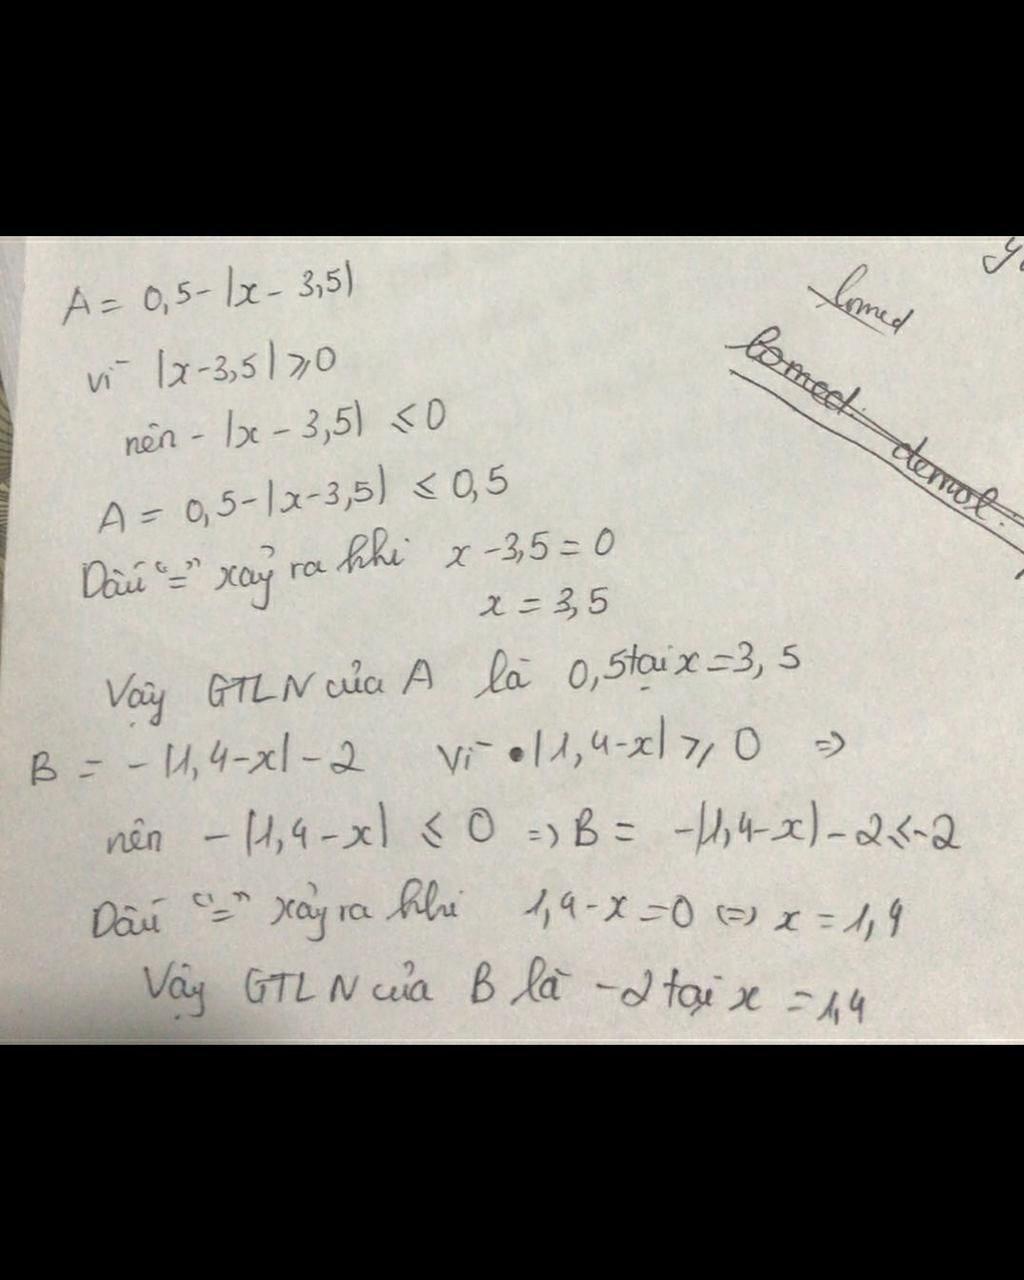 A = 0,5 - |x - 3,5|
vì |x - 3,5| ⩾ 0
nên - |x - 3,5| ≤ 0
A = 0,5 - |x - 3,5| ≤ 0,5
Dấu "=" xảy ra khi x - 3,5 = 0
x = 3,5
Vậy GTLN của A là 0,5 tại x = 3,5
B = - |1,4 - x| - 2 Vì • |1,4 - x| ⩾ 0 =>
nên - |1,4 - x| ≤ 0 => B = - |1,4 - x| - 2 ≤ -2
Dấu "=" xảy ra khi 1,4 - x = 0 <=> x = 1,4
Vậy GTLN của B là -2 tại x = 1,4